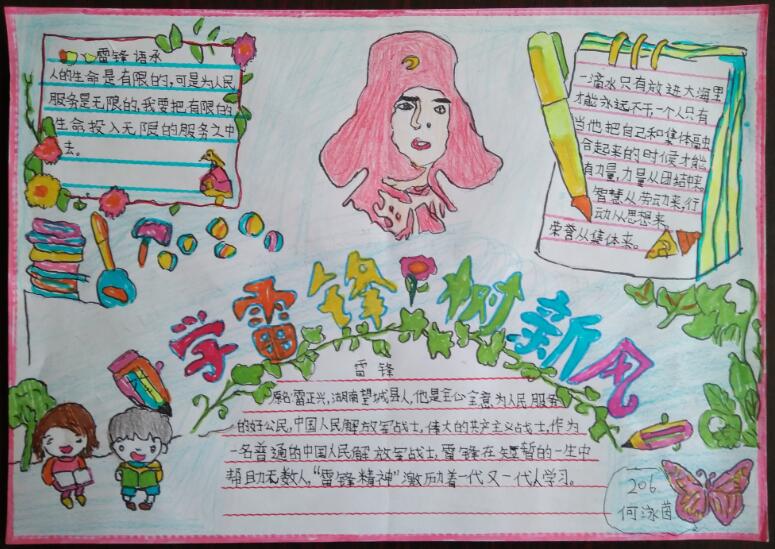 雷锋语录
人的生命是有限的,可是为人民
服务是无限的,我要把有限的
生命,投入无限的服务之中
去。
一滴水只有放进大海里
才能永远不干,一个人只有
当他把自己和集体融
合起来的时候才能
有力量,力量从团结中来。
智慧从劳动来,行
动从思想来。
荣誉从集体来。
学雷锋·树新风
雷锋
原名雷正兴,湖南望城县人,他是全心全意为人民服务
的好公民,中国人民解放军战士,伟大的共产主义战士,作为
一名普通的中国人民解放军战士,雷锋在短暂的一生中
帮助无数人,“雷锋精神”激励着一代又一代人学习。
206
何泳茵